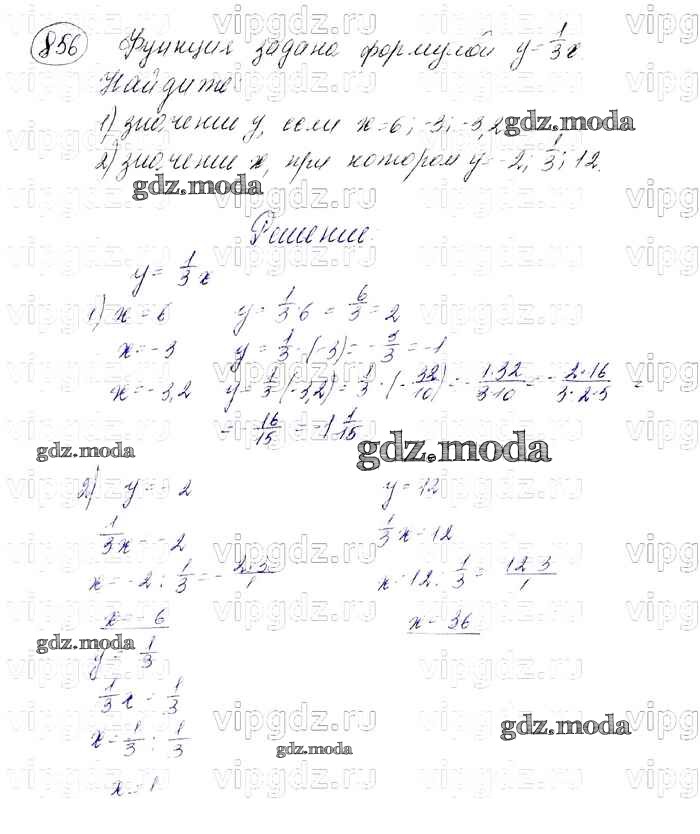 856 Функция задана формулой y = 1/3 x
Найдите
1) значении y, если x = 6; -3; -3,2
gdz.moda
2) значении x, при котором y = -2; 1/3; 12.
gdz.moda
Решение.
y = 1/3 x
1) x = 6 y = 1/3 · 6 = 6/3 = 2
x = -3 y = 1/3 · (-3) = -3/3 = -1
x = -3,2 y = 1/3 · (-3,2) = 1/3 · (-32/10) = -1·32/3·10 = -2·16/3·2·5 =
= -16/15 = -1 1/15
gdz.moda
gdz.moda
2) y = -2 y = 12
1/3 x = -2 1/3 x = 12
x = -2 : 1/3 = -2·3/1 x = 12 : 1/3 = 12·3/1
x = -6 x = 36
gdz.moda
y = 1/3
1/3 x = 1/3
x = 1/3 : 1/3
gdz.moda
gdz.moda
x = 1
vipgdz.ru